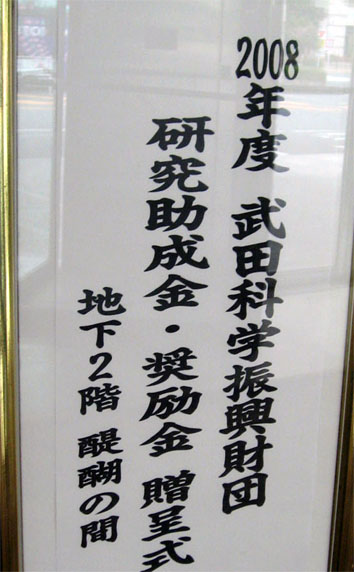 2008年度 武田科学振興財団
研究助成金・奨励金 贈呈式
地下2階 醍醐の間